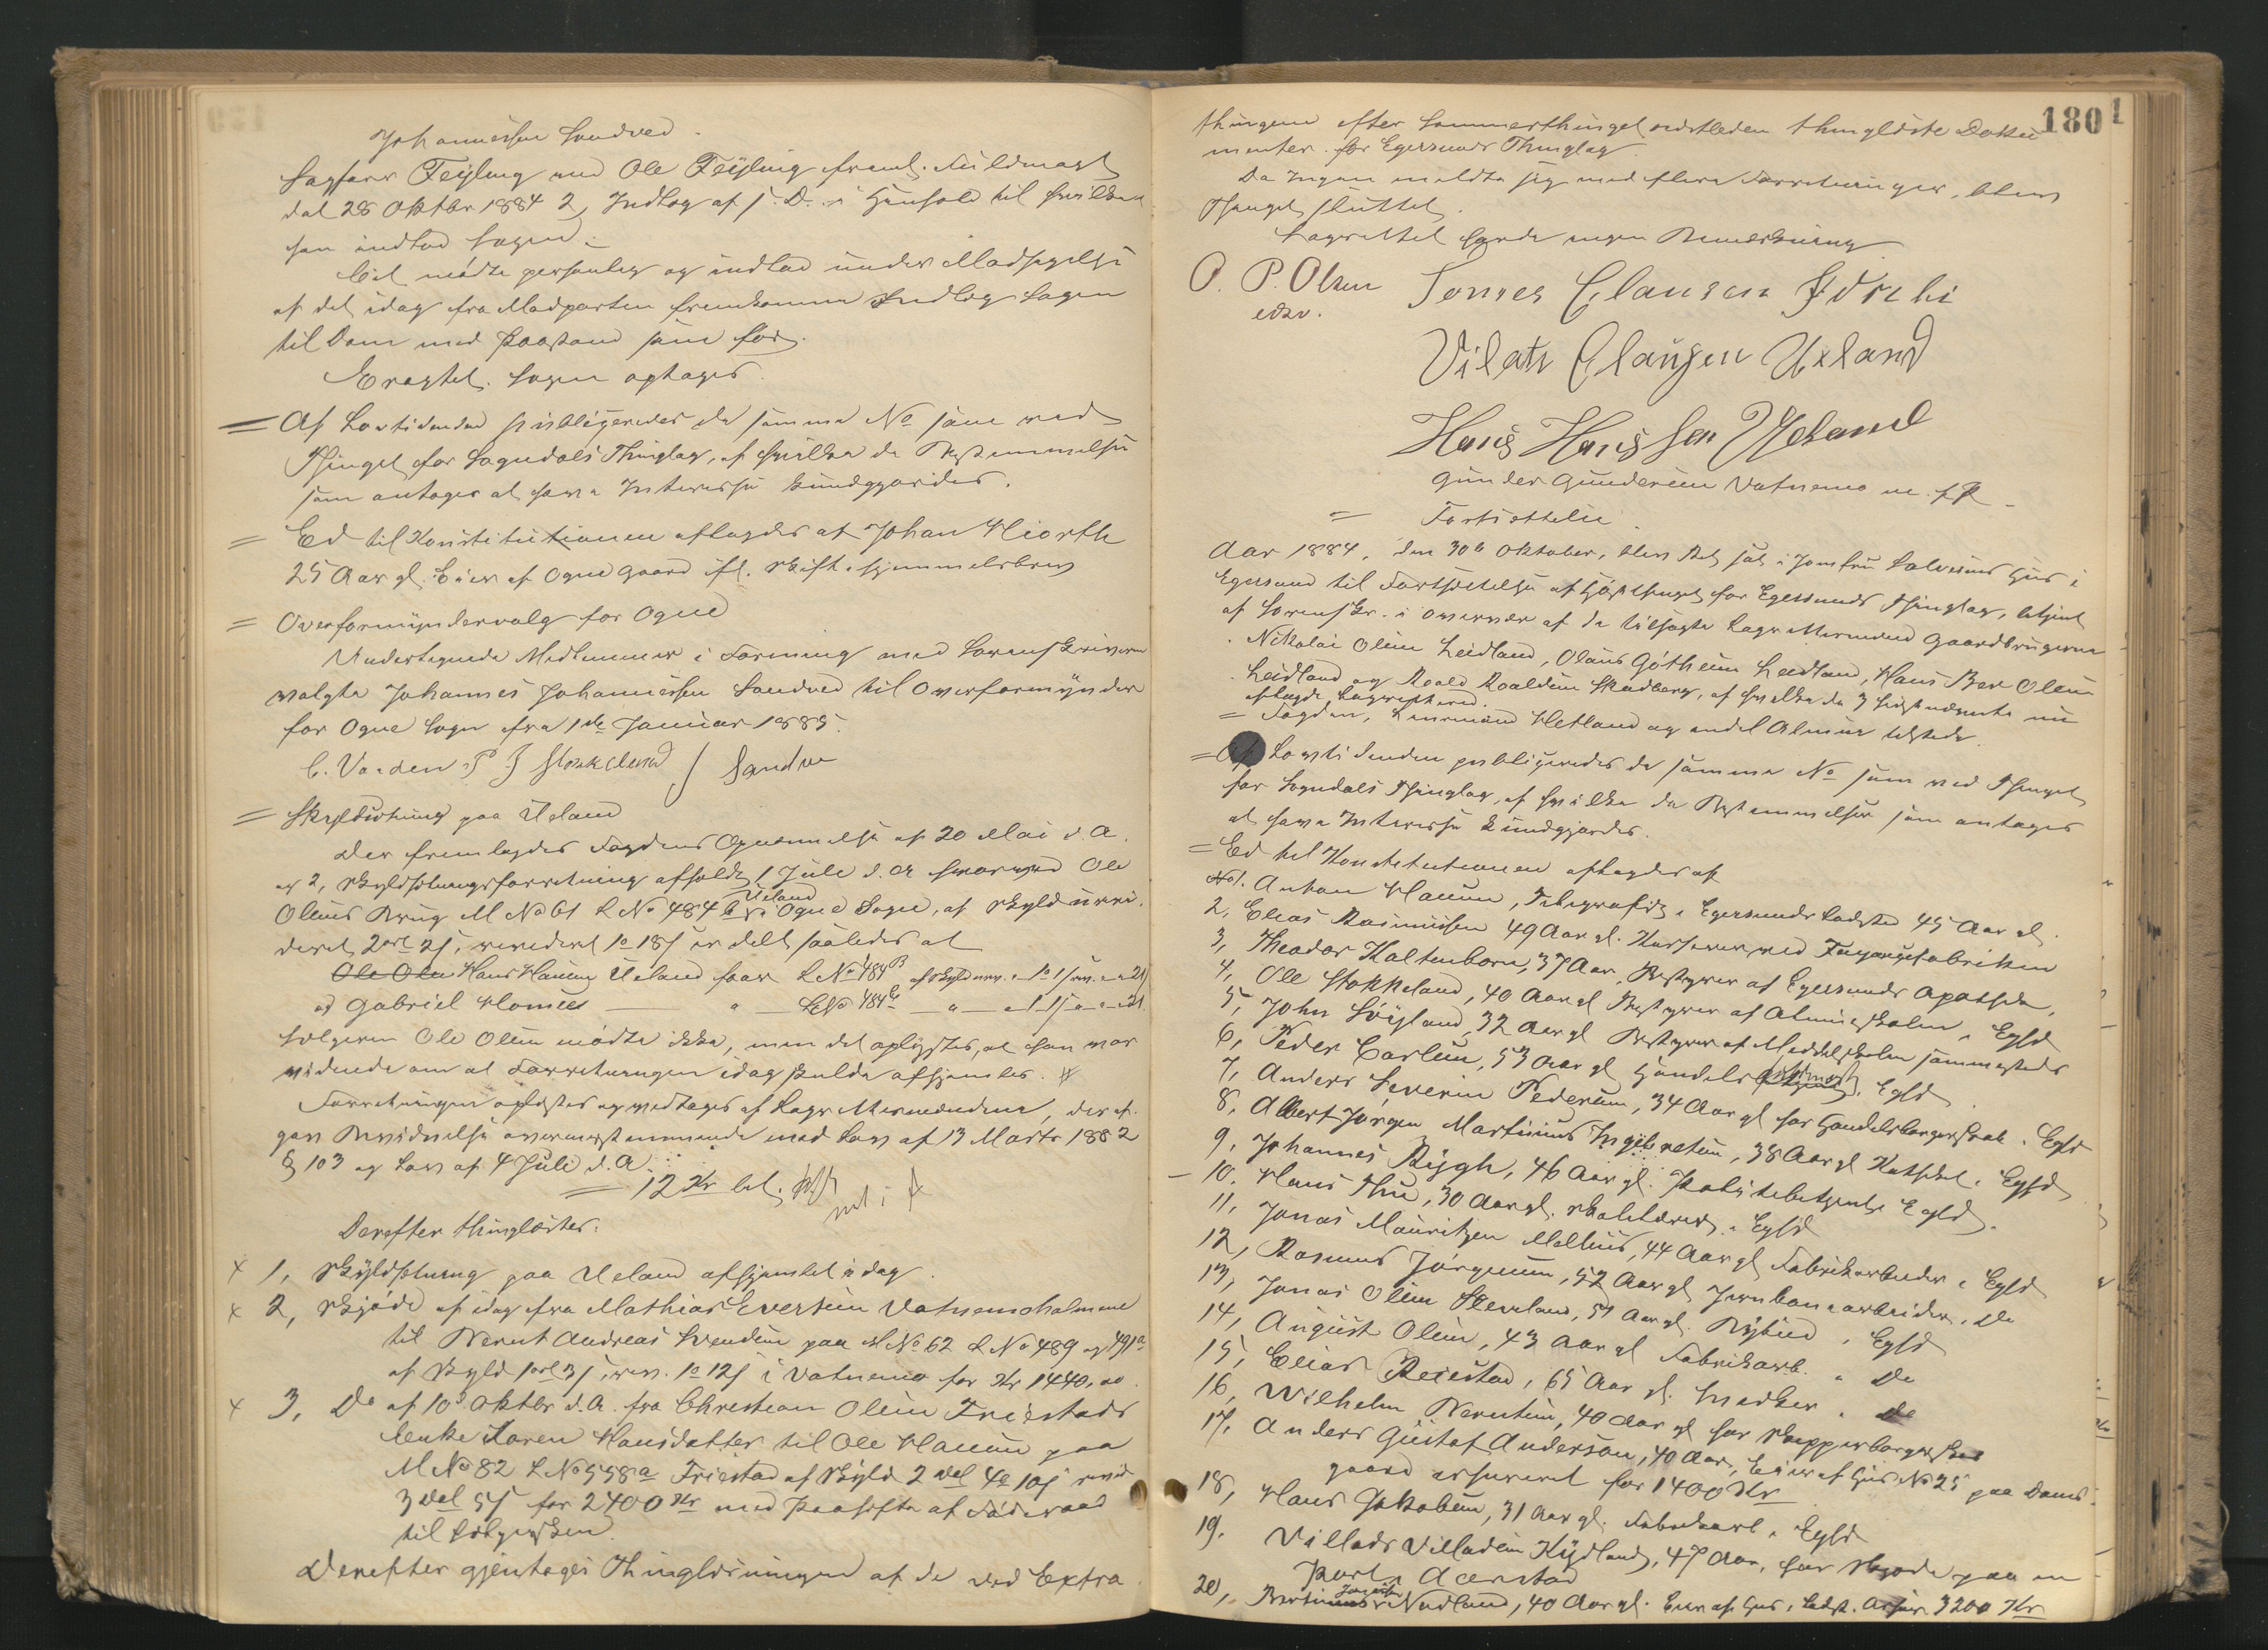 Johannessen Sandved.
Sagfører Feyling med Ole Feyling freml. Fuldmagt
dat 28 Oktbr 1884 2, Indlæg af s. D. i Henhold til hvilken
han indlod Sagen.
Cit. mødte personlig og indlod under Modsigelse
af det idag fra Modparten fremkomne Indlæg Sagen
til Dom med Paastand som før.
Eragtet. Sagen optages.
= Af Lovtidenden publiceredes de samme No som ved
Thinget for Sogndals Thinglag, af hvilke de Bestemmelser
som antages at have Interesse kundgjordes.
= Ed til Konstitutionen aflagdes af Johan Hiorth
25 Aar gl. Eier af Ogne Gaard ifl. Skiftehjemmelsbrev
= Overformyndervalg for Ogne
Undertegnede Medlemmer i Forening med Sorenskriveren
valgte Johannes Johannessen Sandved til Overformynder
for Ogne Sogn fra 1ste Januar 1885.
C. Varden P J Stokkeland J Sandve
= Skyldsætning paa Ueland
Der fremlagdes Fogdens Opnævnelse af 20 Mai d. A.
og 2, Skyldsætningsforretning afholdt 1 Juli d. A hvorved Ole
Olsens Brug M No 61 L No 484 b Ueland i Ogne Sogn, af Skyld urevi-
deret 2 ort 2 s, revideret 1 o 18 s er delt saaledes at
Ole Olsen Hans Hansen Ueland faar L No 484 B af Skyld urev. 1 o 1 s rev. 21
og Gabriel Homse — " — L No 484 c — " — 1-1 s 21
Sælgeren Ole Olsen mødte ikke, men det oplystes, at han var
vidende om at Forretningen idag skulde afhjemles. #
Forretningen oplæstes og vedtoges af Lagrettemændene, der af-
gav Bevidnelse overensstemmende med Lov af 13 Marts 1882
§ 103 og Lov af 4 Juli d. A.
= 12 Kr bet.
Derefter thinglæstes:
x 1, Skyldsætning paa Ueland afhjemlet idag.
x 2, Skjøde af idag fra Mathias Evertsen Vatnemoholmene
til Bernt Andreas Svendsen paa M No 62 L No 489 og 491 a
af Skyld 1 ort 3 s, rev. 1 o 12 s i Vatnemo for Kr 1440,00.
x 3, Do af 10 Oktbr d. A. fra Christian Olsen Friestads
Enke Karen Hansdatter til Ole Hansen paa
M No 82 L No 558 a Friestad af Skyld 2 dal 4 o 10 s revid
3 dal 5 s for 2400 Kr med Paahefte af Føderaad
til Sælgersken.
Derefter gjentoges Thinglæsningen af de ved Extra
180 1
thingene efter Sommerthinget sidstleden thinglæste Doku
menter for Egersunds Thinglag
Da Ingen meldte sig med flere Forretninger, blev
Thinget sluttet.
Lagrettet havde ingen Bemærkning
O. P. Olsen
edsv.
Tønnes Clausen
Vilats Clausen Ueland
Hans Hansen Ueland
Gunder Gundersen Vatnemo m. f. P.
= Fortsættelse.
Aar 1884, den 30te Oktober, blev Ret sat i Jomfru Salvesens Hus i
Egersund til Fortsættelse af Høstthinget for Egersunds Thinglag, betjent
af Sorenskr. i Overvær af de tilsagte Lagrettemænd Gaardbrugerne
Nikolai Olsen Leidland, Olaus Gotheim Leidland, Hans Per Olsen
Leidland og Roald Roaldsen Skadberg, af hvilke de 3 sidstnævnte nu
aflagde Lagretteed.
= Fogden, Lensmand Hetland og endel Almue tilstede.
= Af Lovtidenden publiceredes de samme No som ved Thinget
for Sogndals Thinglag, af hvilke de Bestemmelser som antages
at have Interesse kundgjordes.
= Ed til Konstitutionen aflagdes af
1. Anton Hansen, Telegrafist i Egersunds Ladsted 45 Aar gl.
2, Elias Rasmussen 49 Aar gl. Kasserer ved Fayancefabriken
3, Theodor Kaltenborn, 37 Aar, Bestyrer af Egersunds Apothek,
4, Ole Stokkeland, 40 Aar gl Bestyrer af Almueskolen, Egsd
5, John Løigland, 32 Aar gl Bestyrer af Middelskolen sammesteds
6, Peder Carlsen, 53 Aar gl Handelsfuldmægt., Egsd
7, Anders Severin Pedersen, 34 Aar gl har Handelsborgerskab i Egsd
8, Albert Jørgen Martinius Ingebretsen, 38 Aar gl Kusk i Egsd
9, Johannes Rygh, 46 Aar gl. Politibetjent Egsd
- 10. Hans Thu, 30 Aar gl. Skolelærer, Egsd
11, Jonas Mauritzen Mellius, 44 Aar gl Fabrikarbeider i Egsd
12, Rasmus Jørgensen, 52 Aar gl Jernbanearbeider, Do
13, Jonas Olsen Steenland, 51 Aar gl. Bybud, Egsd
14, August Olsen, 43 Aar gl Fabrikarb. " Do
15, Elias Reiestad, 65 Aar gl. Snedker. Do
16, Wilhelm Berntsen, 40 Aar gl har Skipperborgerskab
17, Anders Gustaf Anderson, 40 Aar, Eier af Hus No 25 paa Dams-
gaard assureret for 1400 Kr
18, Hans Jakobsen, 31 Aar gl. Fabrikarb. Egsd
19. Villads Villadsen Kydland, 47 Aar, har Skjøde paa en
Part i Aarstad
20, Bertinius Nudland, 40 Aar gl. Eier af Hus i Ladst. Assur. 3200 Kr